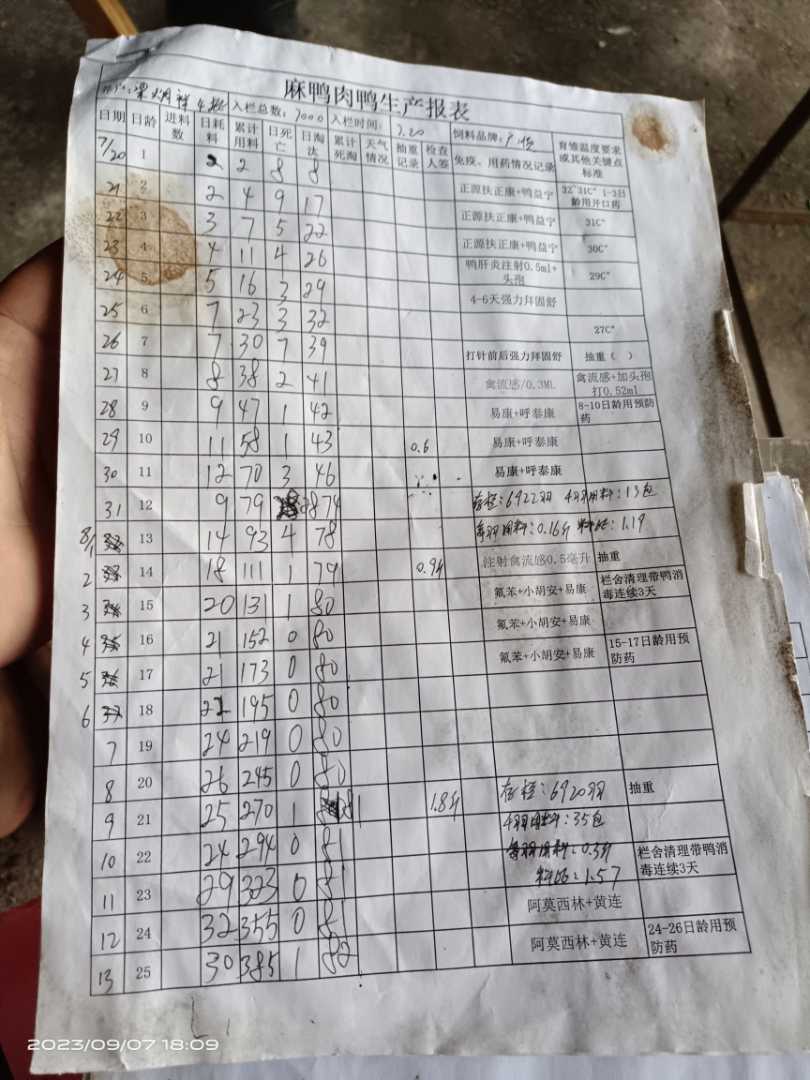 麻鸭肉鸭生产报表
入栏总数：7000 入栏时间：7.20 饲料品牌：
日期 日龄 进料数 日耗料 累计用料 日死亡 日淘汰 累计死淘 天气情况 抽重记录 检查人签 免疫、用药情况记录 育雏温度要求或其他关键点标准
7/20 1 2 2 8 8
21 2 2 4 9 17 正源扶正康+鸭益宁 32~31C° 1-3日龄用开口药
22 3 3 7 5 22 正源扶正康+鸭益宁 31C°
23 4 4 11 4 26 正源扶正康+鸭益宁 30C°
24 5 5 16 3 29 鸭肝炎注射0.5ml+头孢 29C°
25 6 7 23 3 32 4-6天强力拜固舒
26 7 7 30 7 39 27C°
27 8 8 38 2 41 打针前后强力拜固舒 抽重（ ）
28 9 9 47 1 42 禽流感/0.3ML 禽流感+加头孢打0.52ml
29 10 11 58 1 43 0.6 易康+呼泰康 8-10日龄用预防药
30 11 12 70 3 46 易康+呼泰康
31 12 9 79 28 74 易康+呼泰康
8/1 13 14 93 4 78 存栏：6922羽 料：13包
2 14 18 111 1 79 0.9斤 每羽用料：0.16斤 料比：1.19
3 15 20 131 1 80 注射禽流感0.5毫升 抽重
4 16 21 152 0 80 氟苯+小胡安+易康 栏舍清理带鸭消毒连续3天
5 17 21 173 0 80 氟苯+小胡安+易康
6 18 22 195 0 80 氟苯+小胡安+易康 15-17日龄用预防药
7 19 24 219 0 80
8 20 26 245 0 80
9 21 25 270 1 81 1.8斤 存栏：6920羽 抽重
10 22 24 294 0 81 料：35包
11 23 29 323 0 81 料比：1.57 栏舍清理带鸭消毒连续3天
12 24 32 355 0 81 阿莫西林+黄连
13 25 30 385 1 82 阿莫西林+黄连 24-26日龄用预防药
2023/09/07 18:09